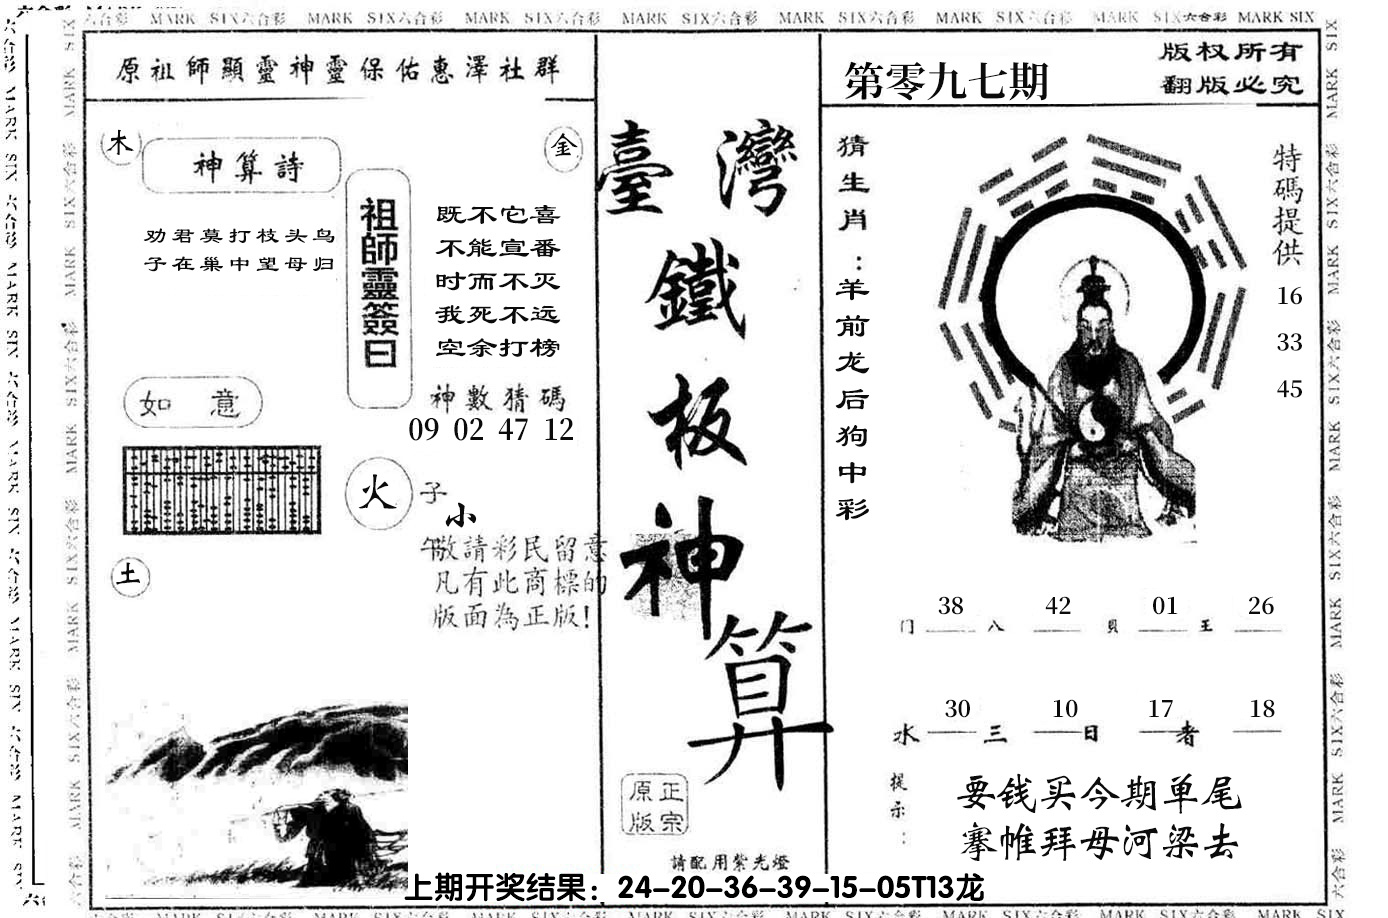 MARK SIX六合彩 MARK SIX六合彩 MARK SIX六合彩 MARK SIX六合彩 MARK SIX六合彩 MARK SIX六合彩 MARK SIX六合彩 MARK SIX
原祖師顯靈神靈保佑惠澤社群
木
神算詩
金
劝君莫打枝头鸟
子在巢中望母归
祖師靈簽曰
既不它喜
不能宣番
时而不灭
我死不远
空余打榜
神數猜碼
09 02 47 12
如意
火
子
小
午敬請彩民留意
凡有此商標的
版面為正版!
土
臺灣
鐵
板
神
算
原正
版宗
請配用紫光燈
第零九七期
版权所有
翻版必究
猜生肖：羊前龙后狗中彩
特碼提供
16
33
45
门 38 八 42 貝 01 王 26
水 30 三 10 日 17 者 18
提示：
要钱买今期单尾
搴帷拜母河梁去
上期开奖结果：24-20-36-39-15-05T13龙